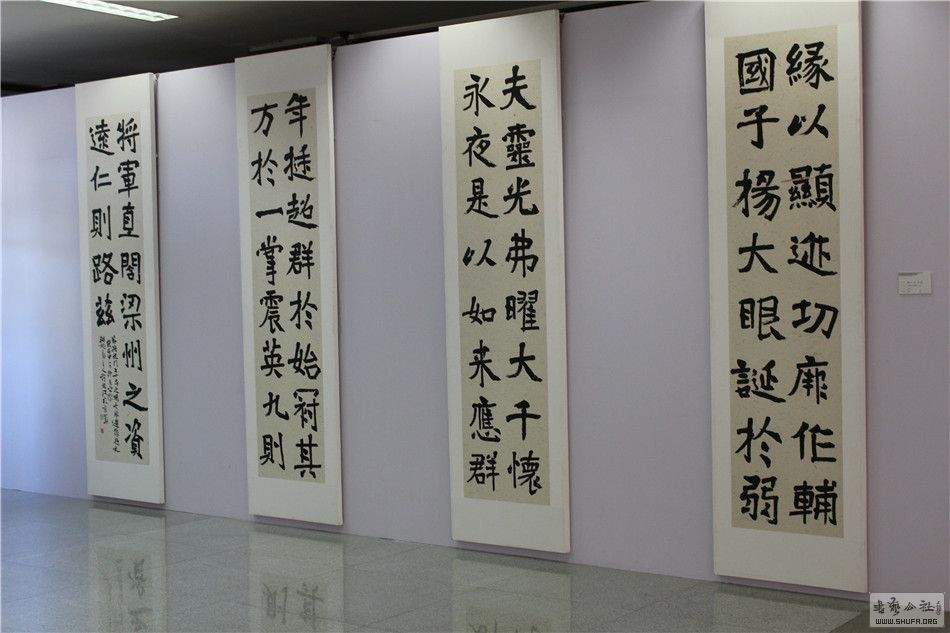 緣以顯迹功厥作輔
國子楊大眼誕於弱
夫靈光弗曜大千懷
永夜是以如来應群
年挺超群於始冠其
方於一掌震英九則
將軍直閣梁州之資
遠仁則路茲
書藝公社
WWW.SHUFA.ORG